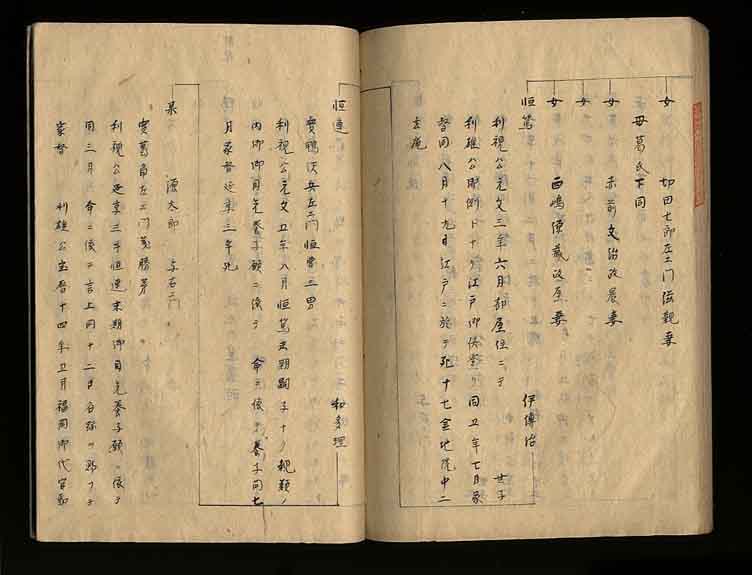 女 切田七郎左エ門 妻
女 母葛氏下同
女 赤前文治政農妻
女
女 西嶋傳蔵政 妻
恒篤 伊傳治
利視公元文三年六月部屋住ニテ 世子
利雄公 江戸御供登リ同五年七月家
督同八月十九日江戸ニ於テ死十七金地院中ニ
去庵
恒達 和多理
実鴨沢兵左エ門恒豊三男
利視公元文五年八月恒篤末期嗣子ナク親類ノ
内御目見養子願ニ依テ 命ニ依テ養子同七
月家督延享三年死
某 源太郎 与右エ門
実葛角左エ門 勝弟
利視公延享三年恒達末期御目見養子願ニ依テ
同三月 命ニ依テ言上同十二日 称ヲ フテ
家督 利雄公宝暦十四年五月福岡御代官